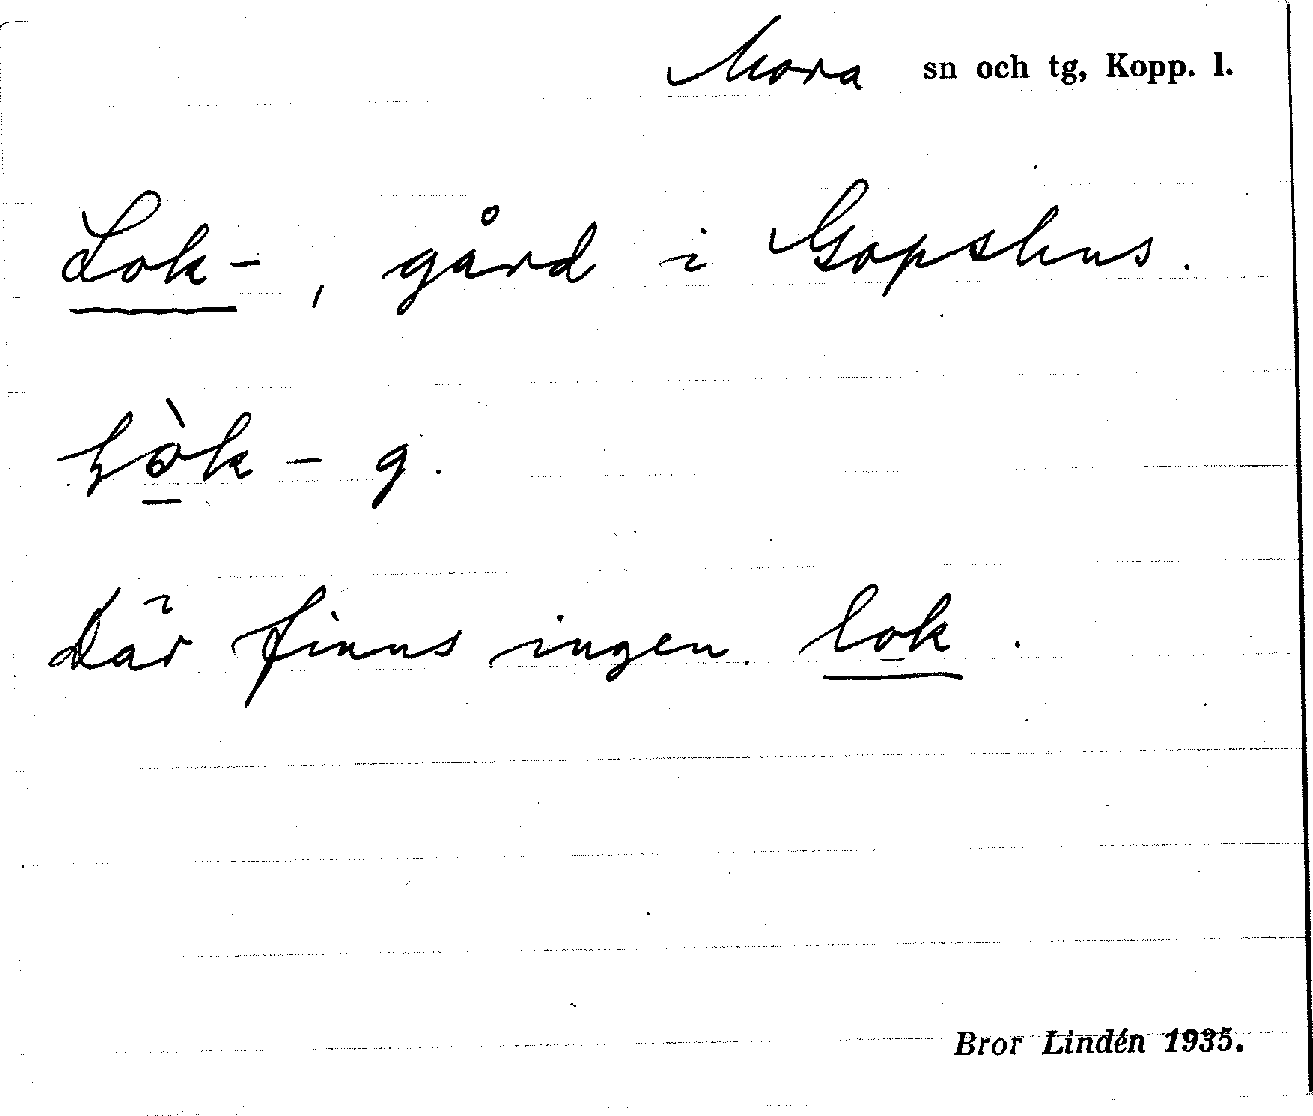 Mora sn och tg, Kopp. l.
Lok-, gård i Gopshus.
lòk - g.
Där finns ingen lok.
Bror Lindén 1935.